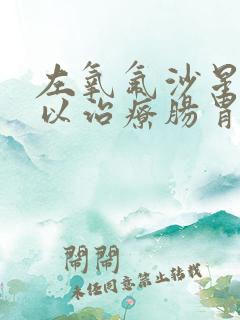 左氧氟沙星
以治療腸胃
鬧鬧
未任同意禁止转载